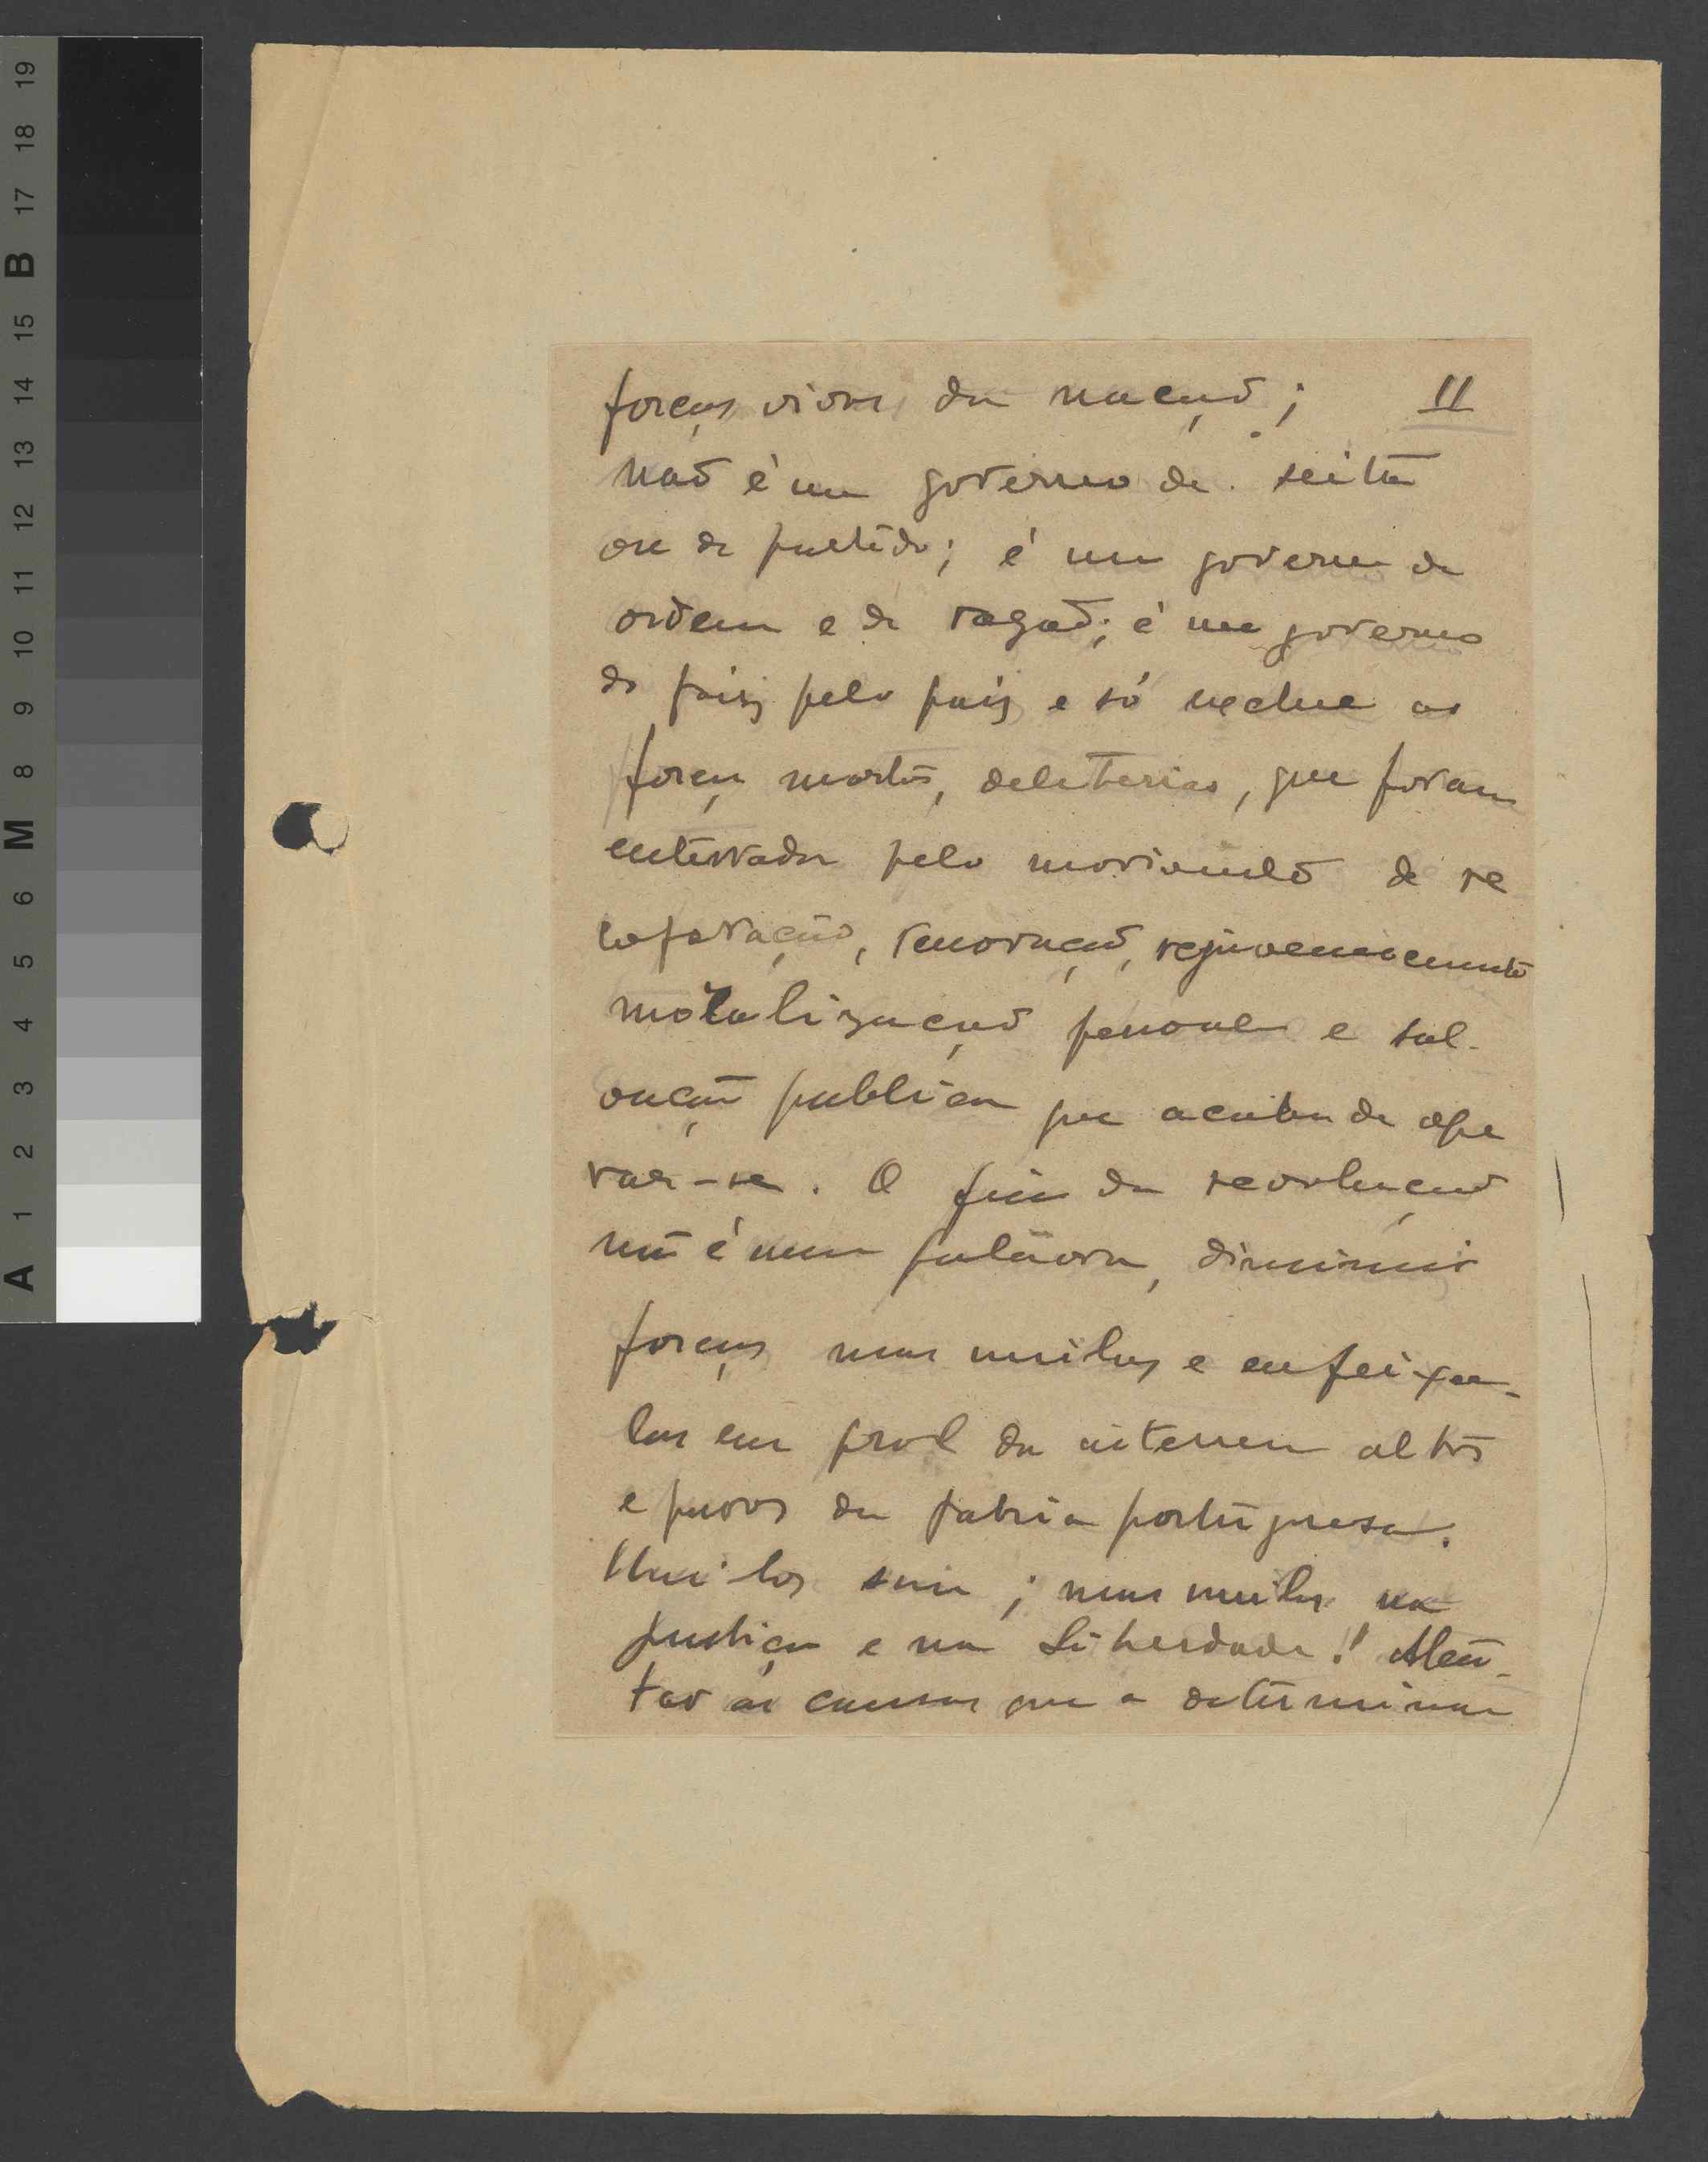 forças vivas da nação; 11
não é um governo de seita
ou de partido; é um governo de
ordem e de razão; é um governo
do paiz pelo paiz e só exclue as
forças mortas, deleterias, que foram
enterradas pelo movimento de re
cuperação, renovação, rejuvenescimento
moralização pessoal e sal-
vação publica que acaba de ope
rar-se. O fim da revolução
não é numa palavra, diminuir
forças mas unilas e enfeixa-
las em prol dos interesses altos
e puros da patria portuguesa.
Unilos sim; mas unilos na
Justiça e na Liberdade! Aten-
tar ás causas que a determinam
A 1 2 3 4 5 6 M 8 9 10 11 12 13 14 15 B 17 18 19